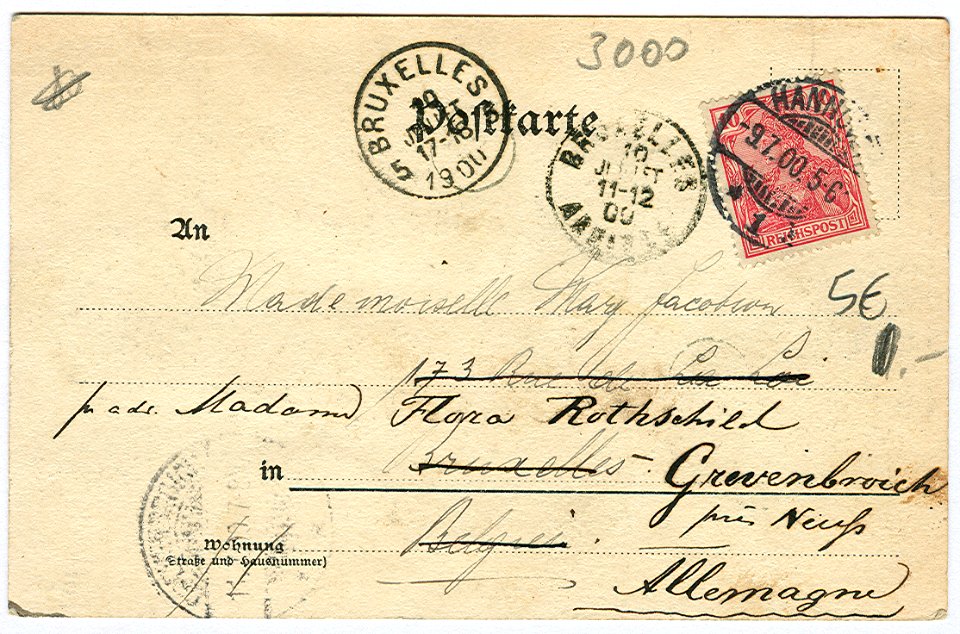 3000
5 BRUXELLES
10
JUILT
17-18
1900
Postkarte
BRUXELLES
10
JUILLET
11-12
00
ARRIVÉE
10
HANNOVER
-9.7.00.5-6
* 1
REICHSPOST
An
Mademoiselle Mary Jacobson
5€
173 Rue de La Loi
Madame Flora Rothschild
in
Bruxelles. Grevenbroich
près Neuß
Belgien
Wohnung
(Straße und Hausnummer)
Allemagne